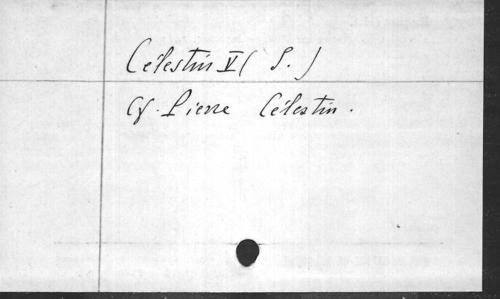 Célestin V ( S. )
Cf. Pierre Célestin.